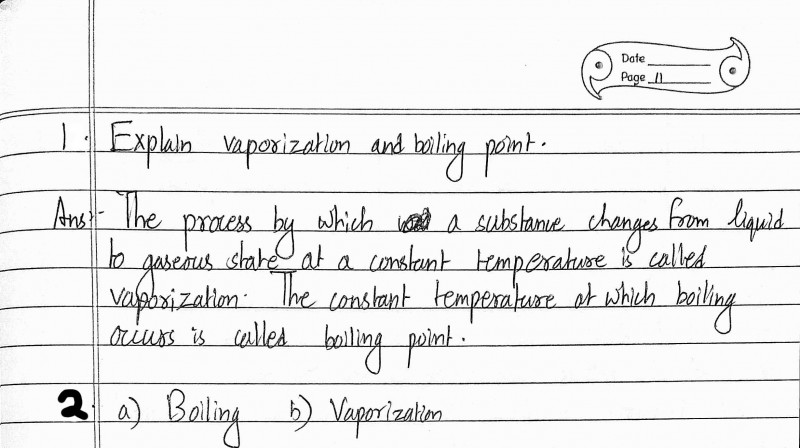 Date
Page 11
1. Explain vaporization and boiling point.
Ans:- The process by which a substance changes from liquid
to gaseous state at a constant temperature is called
vaporization. The constant temperature at which boiling
occurs is called boiling point.
2. a) Boiling b) Vaporization